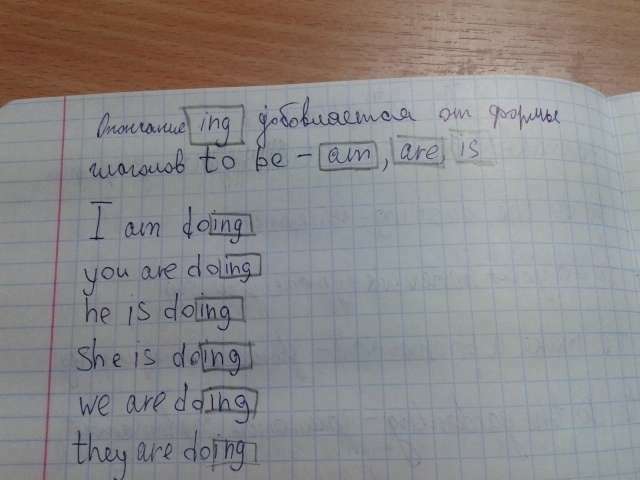 Окончание ing добовляется от формы
глаголов to be - am, are, is
I am doing
you are doing
he is doing
she is doing
we are doing
they are doing